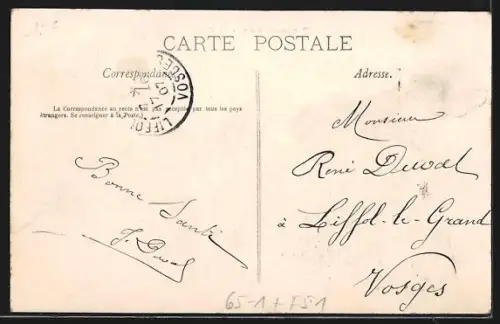 CARTE POSTALE
Correspondance
Adresse.
La Correspondance au recto n'est pas acceptée par tous les pays
étrangers. Se renseigner à la Poste.
LIFFOL
VOSGES
07
Bonne Santé
J. Duval
Monsieur
René Duval
à Liffol-le-Grand
Vosges
65-1 + F51